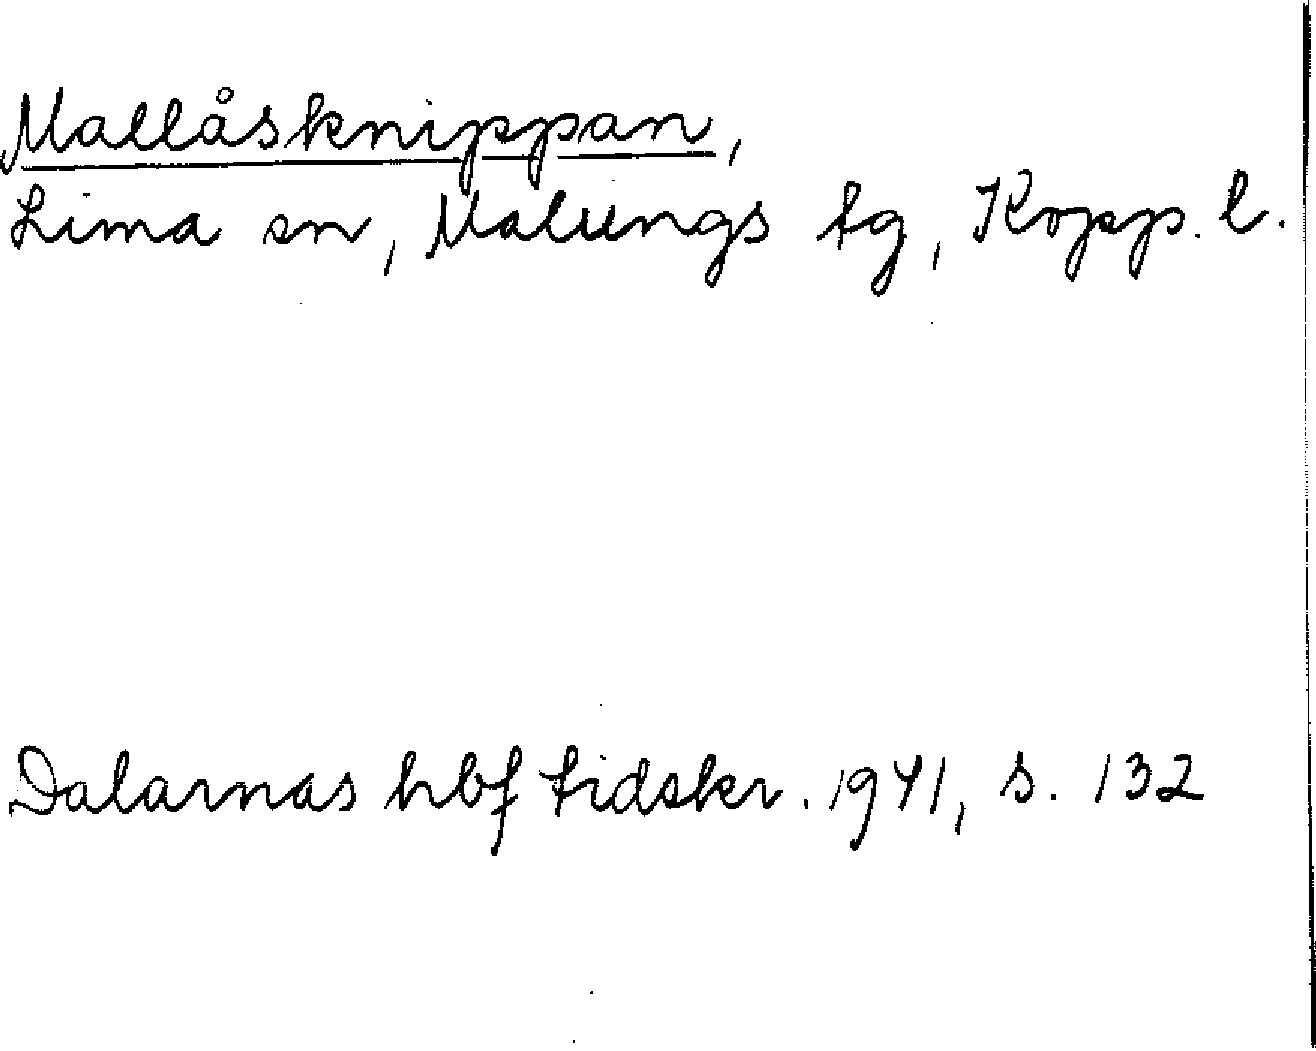 Mallåsknippan,
Lima sn, Malungs tg, Kopp. l.
Dalarnas hbf tidskr. 1941, s. 132